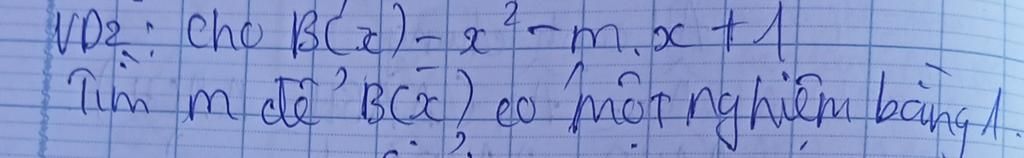 VD2: Cho B(x) = x² - m.x + 1
Tìm m để B(x) có một nghiệm bằng 1.